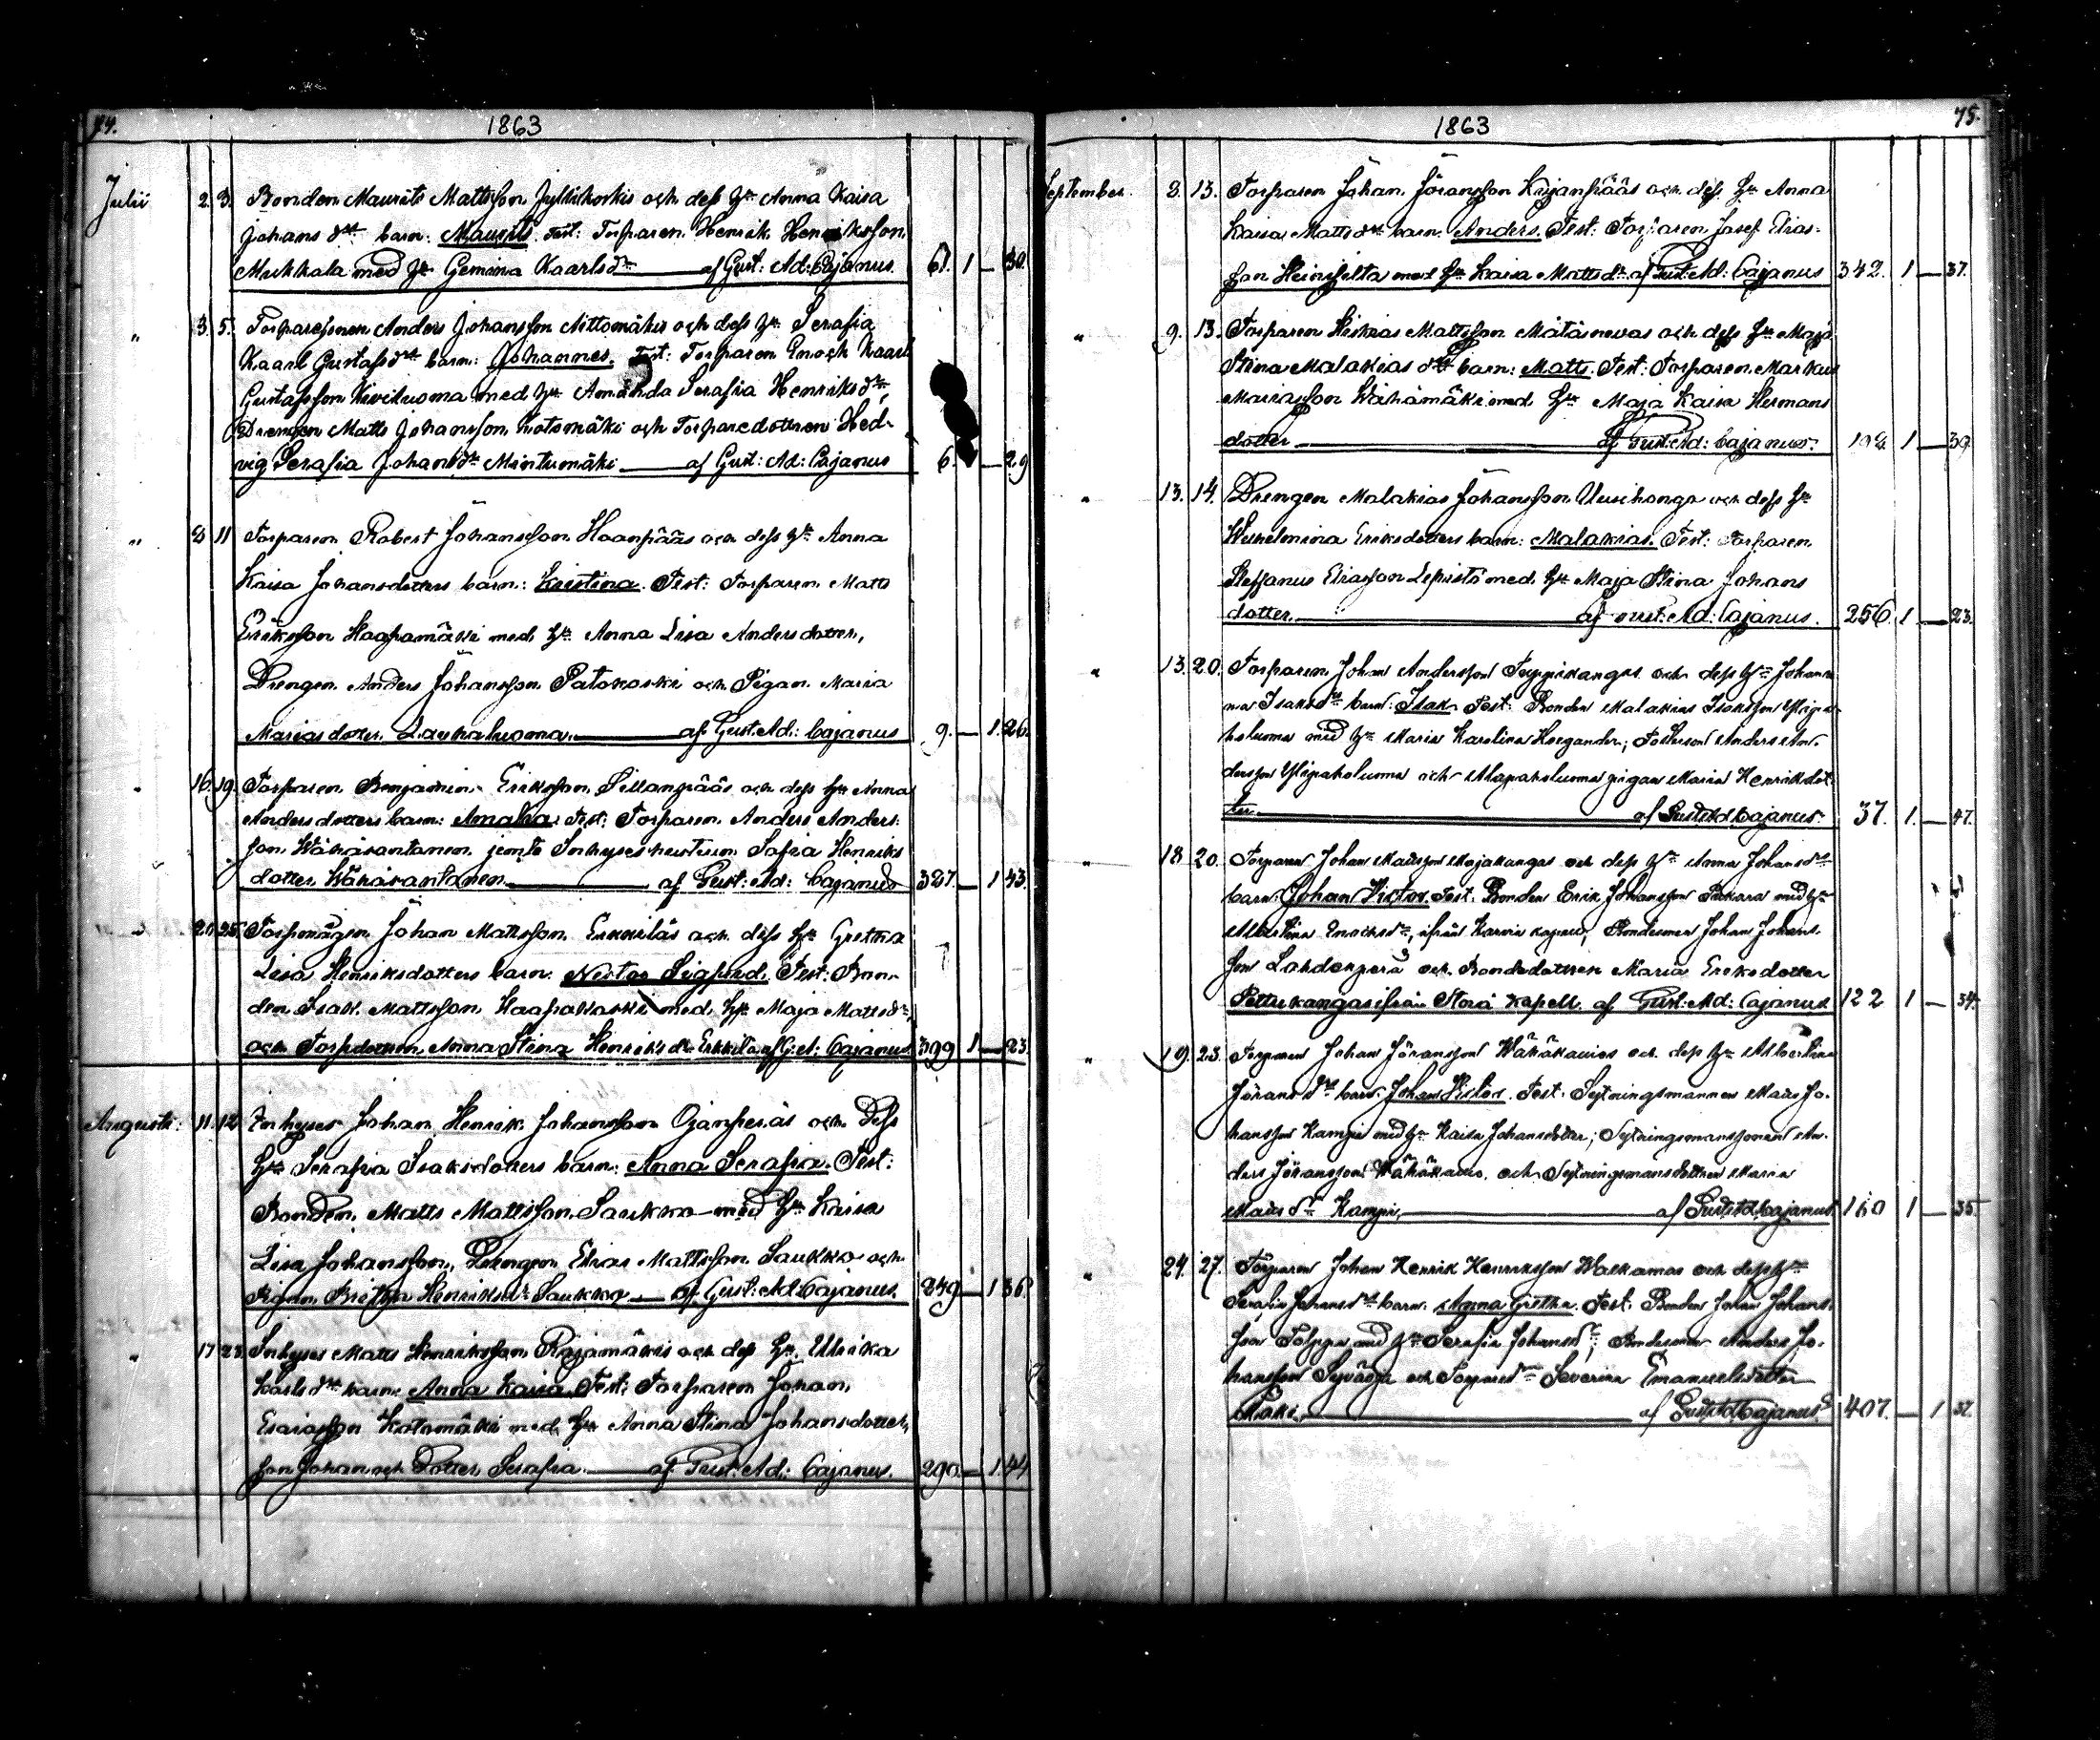 74.
1863
Julii 2. 3. Bonden Maurits Mattsson Jylhäkoskis och dess h:u Anna Kaisa
Johans d:rs barn: Maurits. Test: Torparen Henrik Henriksson
Mukkala med h:u Gemina Kaarlsd:r af Gust: Ad: Cajanus. 61. 1 — 30.
" 3. 5. Torparesonen Anders Johansson Nittomäkis och dess h:u Serafia
Kaarl Gustafsd:rs barn: Johannes. Test: Torparen Enoch Kaarl
Gustafsson Kiviluoma med h:u Amanda Serafia Henriksd:r,
Drengen Matts Johansson Kotomäki och Torparedottren Hed-
vig Serafia Johansd:r Mäntymäki af Gust: Ad: Cajanus 6. — 29
" 8 11 Torparen Robert Johansson Haanpääs och dess h:u Anna
Kaisa Johansdotters barn: Kristina. Test: Torparen Matts
Eriksson Haapamäki med h:u Anna Lisa Andersdotter,
Drengen Anders Johansson Patokoski och Pigan Maria
Mariasdotter Laukaluoma. af Gust. Ad.: Cajanus 9. — 1. 26.
" 16. 19. Torparen Benjamin Eriksson Sillanpääs och dess h:u Anna
Andersdotters barn: Amalia. Test: Torparen Anders Anders-
son Wähäsantanen jemte Inhyseshustrun Sofia Henriks
dotter Wähäsantanen af Gust: Ad: Cajanus 327. — 1 43.
" 20. 25. Torpmågen Johan Mattsson Erkkiläs och dess h:u Gretha
Lisa Henriksdotters barn: Nestor Sigfred. Test: Bon-
den Isak Mattsson Haapakoski med h:u Maja Mattsd:r,
och Torpdottren Anna Stina Henriksd:r Erkkilä af G: A: Cajanus 399 1 — 23.
Augusti: 11. 12 Inhyses Johan Henrik Johansson Ojanperäs och dess
h:u Serafia Isaksdotters barn: Anna Serafia. Test:
Bonden Matts Mattsson Saukko med h:u Kaisa
Lisa Johansson, Drengen Elias Mattsson Saukko och
Pigan Britha Henriksd:r Saukko af Gust: Ad: Cajanus. 249 — 1 36.
" 17 23. Inhyses Matts Henriksson Rajamäkis och dess h:u Ulrika
Karlsd:rs barn: Anna Kaisa. Test: Torparen Johan
Esaiasson Kotomäki med h:u Anna Stina Johansdotter,
son Johan och Dotter Serafia. af Gust: Ad: Cajanus. 290. — 1. 44
75.
1863
September. 8. 13. Torparen Johan Jöransson Kujanpääs och dess h:u Anna
Kaisa Mattsd:rs barn: Anders. Test: Torparen Josef Elias-
son Heinisalta med h:u Kaisa Mattsd:r af Gust: Ad: Cajanus 342. 1 — 37.
" 9. 13. Torparen Hiskias Mattsson Mätäsnevas och dess h:u Maja
Stina Malakias d:rs barn: Matts. Test: Torparen Markus
Mariasson Wähämäki med h:u Maja Kaisa Hermans
dotter af Gust: Ad: Cajanus. 198 1 — 39
" 13. 14. Drengen Malakias Johansson Uusihonga och dess h:u
Wilhelmina Eriksdotters barn: Malakias. Test: Torparen
Steffanus Eliasson Lepistö med h:u Maja Stina Johans
dotter. af Gust: Ad: Cajanus. 256. 1 — 23.
" 13. 20. Torparen Johan Andersson Teppikangas och dess h:u Johan-
na Isaksd:rs barn: Isak. Test: Bonden Malakias Isaksson Ylipa-
holuoma med h:u Maria Karolina Hoegander; Fosterson Anders An-
dersson Ylipaholuoma och Alapaholuoma pigan Maria Henriksdot-
ter af Gust Ad Cajanus. 37. 1. — 47.
" 18 20. Torparen Johan Maijasson Majakangas och dess h:u Anna Johansd:rs
barn: Johan Victor. Test: Bonden Erik Johansson Pokara med h:u
Albertina Enochsd:r, ifrån Karvia kapell, Bondesonen Johan Johans-
son Lahdenperä och Bondedottren Maria Eriksdotter
Pettukangas ifrån Storå Kapell. af Gust: Ad: Cajanus. 122 1 — 34.
" 19. 23. Torparen Johan Jöransson Wähäkauas och dess h:u Albertina
Jöransd:rs barn: Johan Victor. Test: Sytningsmannen Matts Jo-
hansson Kampi med h:u Kaisa Johansdotter; Sytningsmanssonen An-
ders Jöransson Wähäkauas och Sytningsmansdottren Maria
Mattsd:r Kampi, af Gust Ad Cajanus 160 1 — 35.
" 24. 27. Torparen Johan Henrik Henriksson Walkamas och dess h:u
Serafia Johansd:rs barn: Anna Gretha. Test: Bonden Johan Johans-
son Tolppa med h:u Serafia Johansd:r; Bondesonen Anders Jo-
hansson Syväoja och Torpared:r Severina Emanuelsdotter
Mäki, af Gust Ad Cajanus 407. — 1 32.